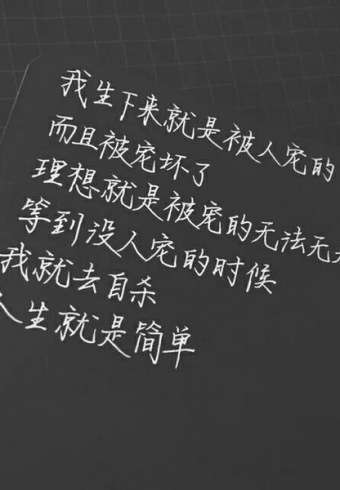 我生下来就是被人宠的
而且被宠坏了
理想就是被宠的无法无
等到没人宠的时候
我就去自杀
人生就是简单